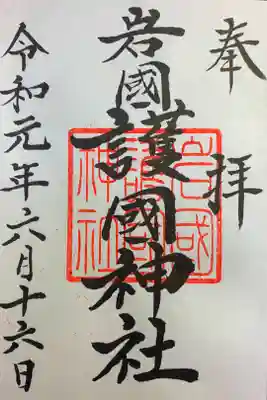 奉拝
岩國護國神社
令和元年六月十六日